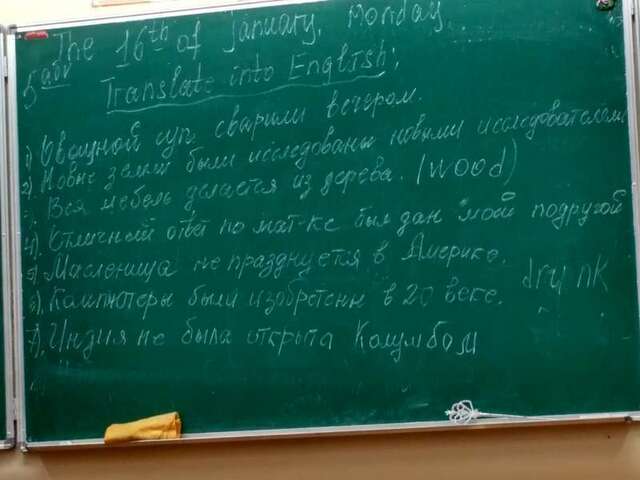 The 16th of January, Monday
5абв
Translate into English:
1) Овощной суп сварили вечером.
2) Новые земли были исследованы новыми исследователями
3) Вся мебель делается из дерева. (wood)
4) Отличный ответ по мат-ке был дан моей подругой
5) Масленица не празднуется в Америке.
drynk
6) Компьютеры были изобретены в 20 веке.
7) Индия не была открыта Колумбом